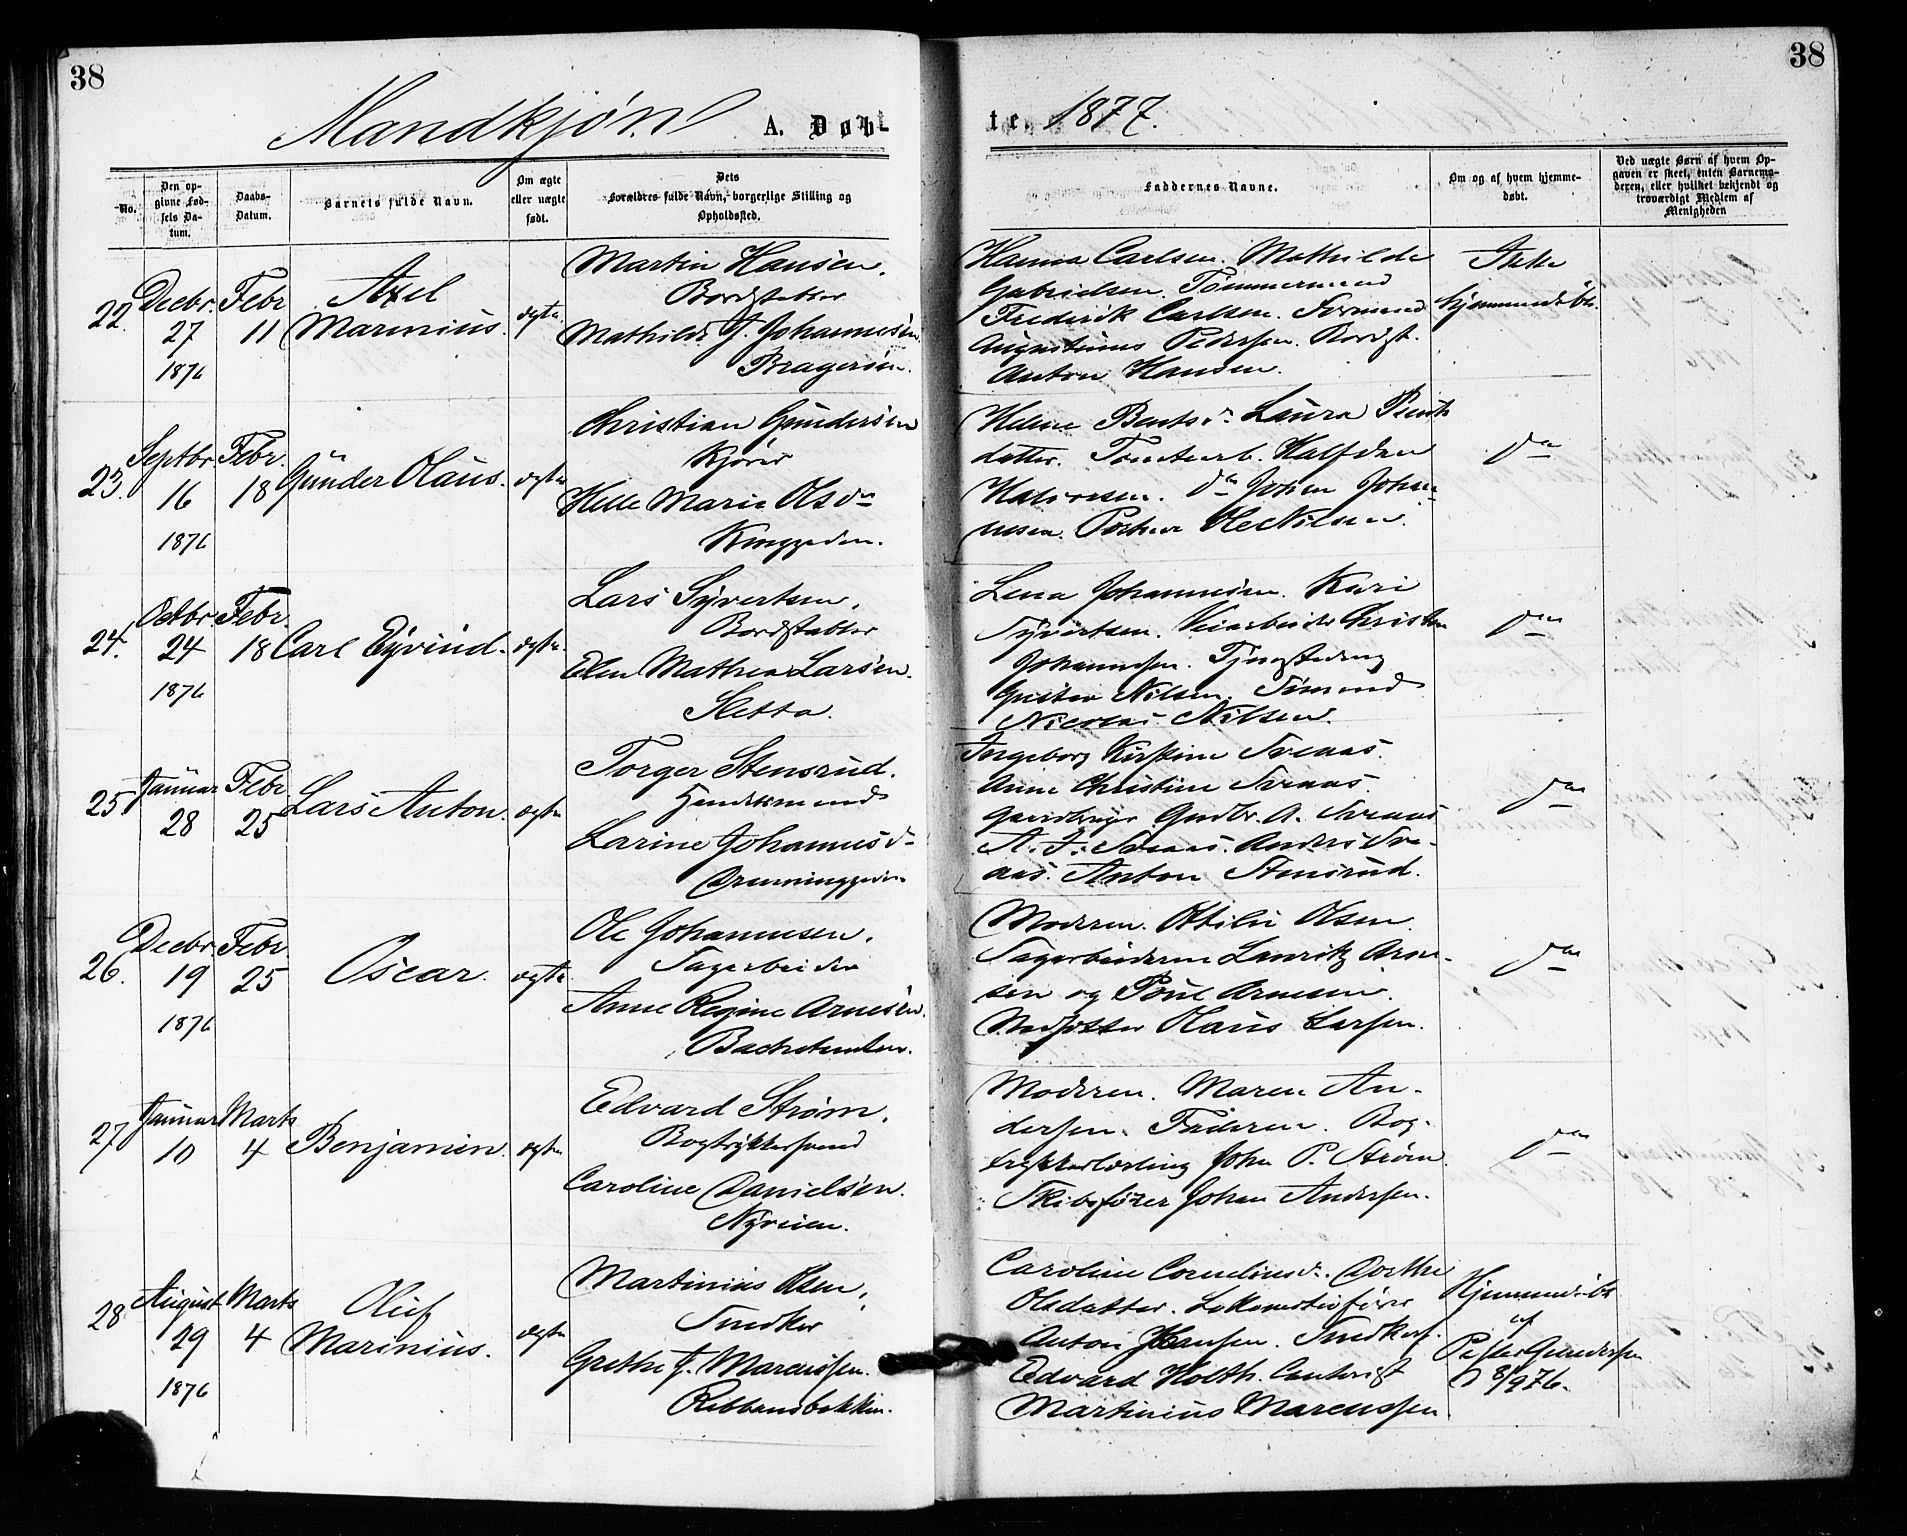 38
38
Mandkjøn A. Døb
te 1877.
No.
Den op-
givne Fød-
sels Da-
tum.
Daabs-
Datum.
Barnets fulde Navn.
Om ægte
eller uægte
født.
Dets
Forældres fulde Navn, borgerlige Stilling og
Opholdssted.
Faddernes Navne.
Om og af hvem hjemme-
døbt.
Ved uægte Børn af hvem Op-
gaven er skeet, enten Barnemo-
deren, eller hvilket bekjendt og
troværdigt Medlem af
Menigheden
22. Decbr. 27 1876
Febr 11
Axel
Marinius.
ægte.
Martin Hansen,
Bordstabler
Mathilde J. Johannesen
Bragerøen.
Hanna Carlsen. Mathilde
Gabrielsen. Tømmermand
Frederik Carlsen. Formand
Augustinus Pedersen. Bordst.
Anton Hansen.
Ikke
hjemmedøbt.
23. Septbr. 16 1876
Febr. 18
Gunder Olaus.
ægte
Christian Gundersen
Kjører
Helle Marie Olsdr
Konggaden.
Helene Bentsdr. Laura Bents
datter. Tomtearb. Halfdan
Halvorsen. do Johan Johan-
nesen. Ole Nilsen.
do
24. Octbr. 24 1876
Febr. 18
Carl Eyvind.
ægte.
Lars Syvertsen,
Bordstabler
Elen Mathea Larsen.
Sletta.
Lena Johannesen. Kari
Syvertsen. Veiarbeider Christen
Johannesen. Tjenestedreng
Gustav Nilsen. Sømand
Nicolai Nilsen.
do
25. Januar 28
Febr. 25
Lars Anton.
ægte
Torger Stensrud.
Handelsmand
Larine Johannesdr
Dronninggaden
Ingeborg Kirstine Svenaas.
Anne Christine Svenaas.
Gaardbruger Gudbr. A. Svenaas
A. J. Svenaas. Anders Sve-
aas. Anton Stensrud.
do
26. Decbr. 19 1876
Febr. 25
Oscar.
ægte
Ole Johannesen,
Sagarbeider
Anne Regine Arnesen.
Bachetomten.
Moderen. Ottilie Olsen.
Sagarbeiderne Lauritz Arne-
sen og Poul Arnesen.
Olaus Larsen.
do
27. Januar 10
Marts 4
Benjamin.
ægte
Edvard Strøm,
Bogtrykkersvend
Caroline Danielsen.
Nyveien.
Moderen. Maren An-
dersen. Faderen. Bog-
trykkerlærling John P. Strøm.
Skibsfører Johan Andersen.
do
28. August 29 1876
Marts 4
Oluf
Marinius.
ægte
Martinius Olsen,
Snedker
Grethe J. Marcussen.
Ribbansbakken.
Caroline Corneliusdr. Dorthe
Olsdatter. Lokomotivfører
Anton Hansen. Snedkers.
Edvard Holth.
Martinius Marcussen
Hjemmedøbt
af
Gundersen
8/9 76.